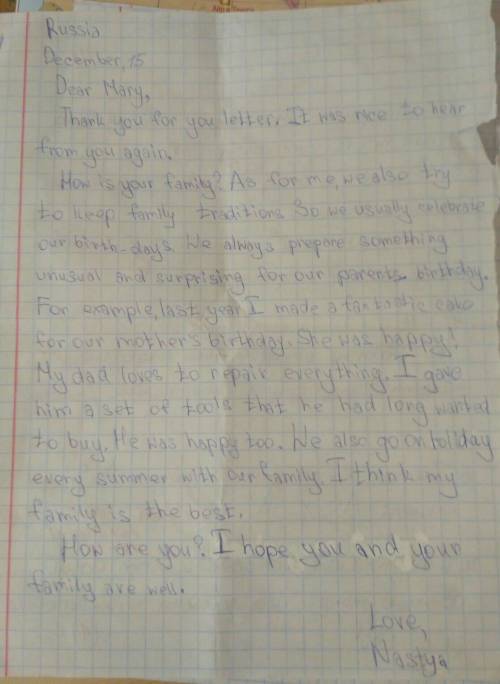 Russia
December, 15
Dear Mary,
Thank you for you letter. It was nice to hear
from you again.
How is your family? As for me, we also try
to keep family traditions. So we usually celebrate
our birth-days. We always prepare something
unusual and surprising for our parents birthday.
For example, last year I made a fantastic cake
for our mother's birthday. She was happy!
My dad loves to repair everything. I gave
him a set of tools that he had long wanted
to buy. He was happy too. We also go on holiday
every summer with our family. I think my
family is the best.
How are you? I hope you and your
family are well.
Love,
Nastya